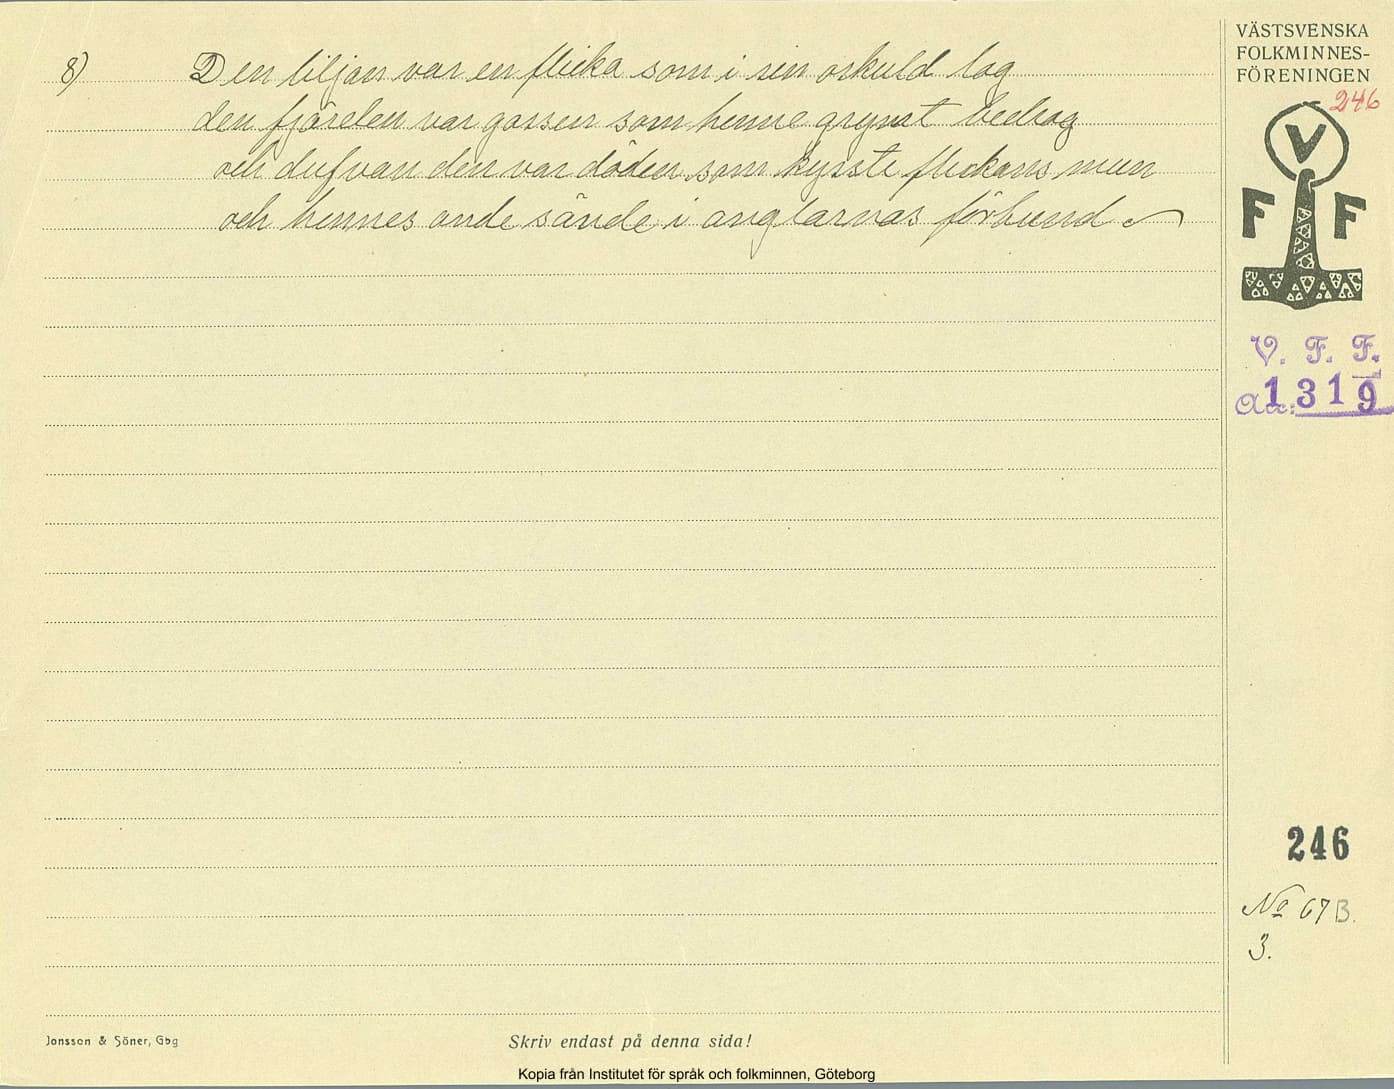 8) Den liljan var en flicka som i sin oskuld log
den fjärelen var gossen som henne grymt bedrog
och dufvan den var döden som kysste flickans mun
och hennes ande sände i änglarnas förbund.
VÄSTSVENSKA
FOLKMINNES-
FÖRENINGEN
246
V
F F
V. F. F.
Acc: 1319
246
No 67B.
3.
Jonsson & Söner, Gbg
Skriv endast på denna sida!
Kopia från Institutet för språk och folkminnen, Göteborg